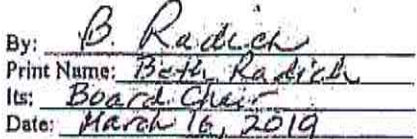 By: B. Radich
Print Name: Beth Radich
Its: Board Chair
Date: March 16, 2019